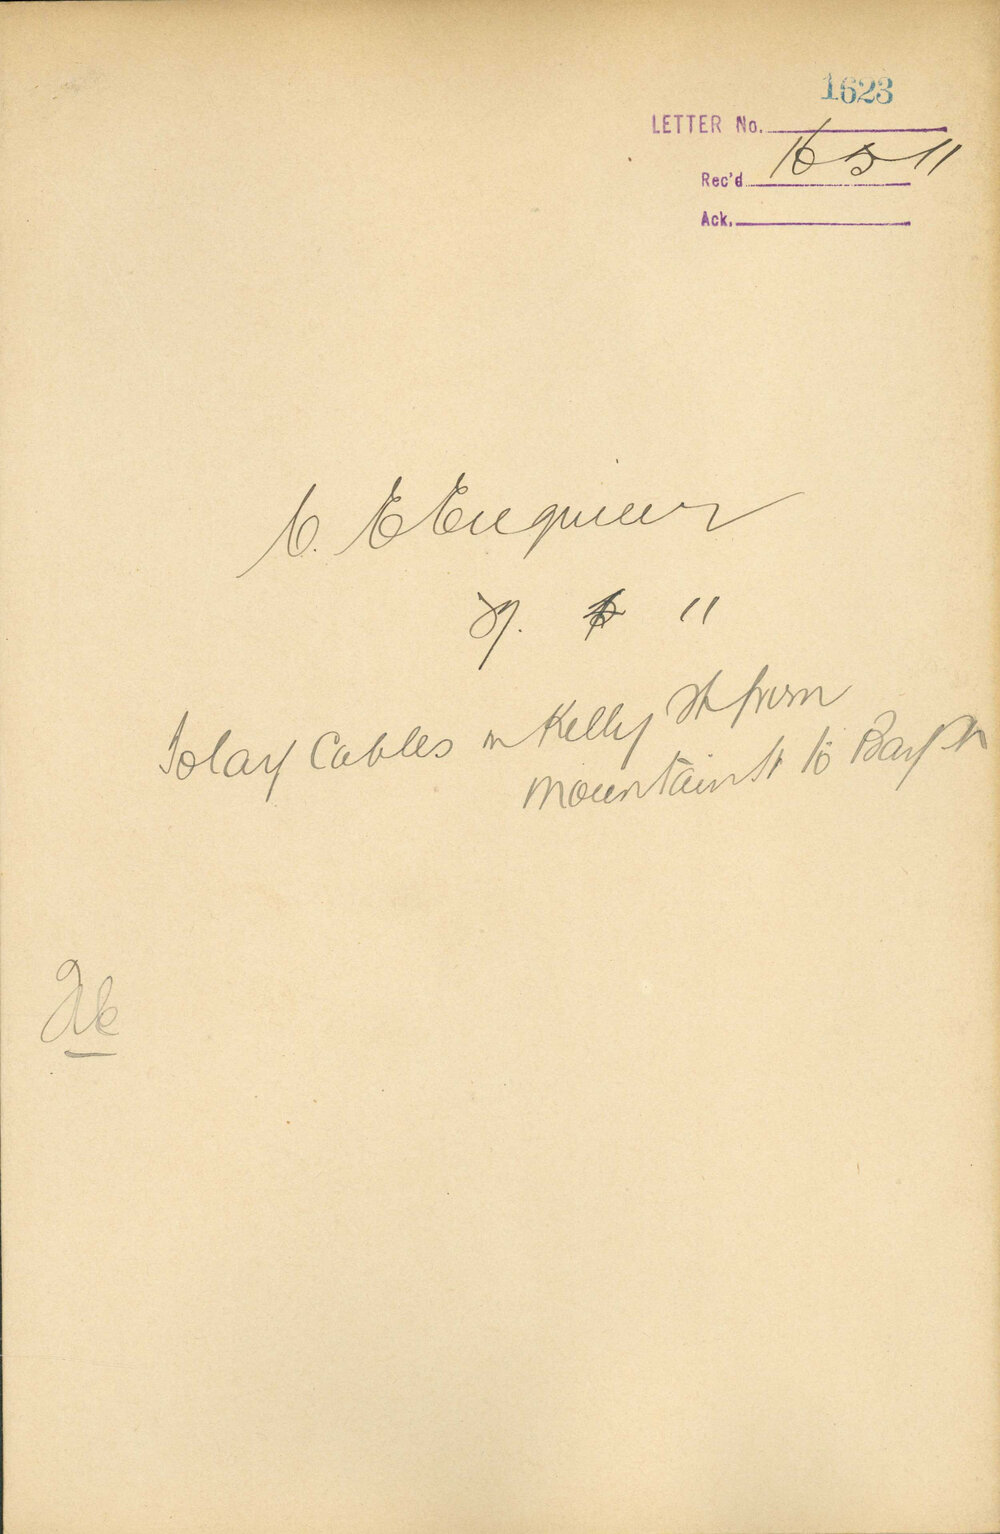 1623
LETTER No.
Rec'd 16 5 11
Ack.
C. E Engineer
11
To lay Cables in Kelly St from
Mountain St to Bay St